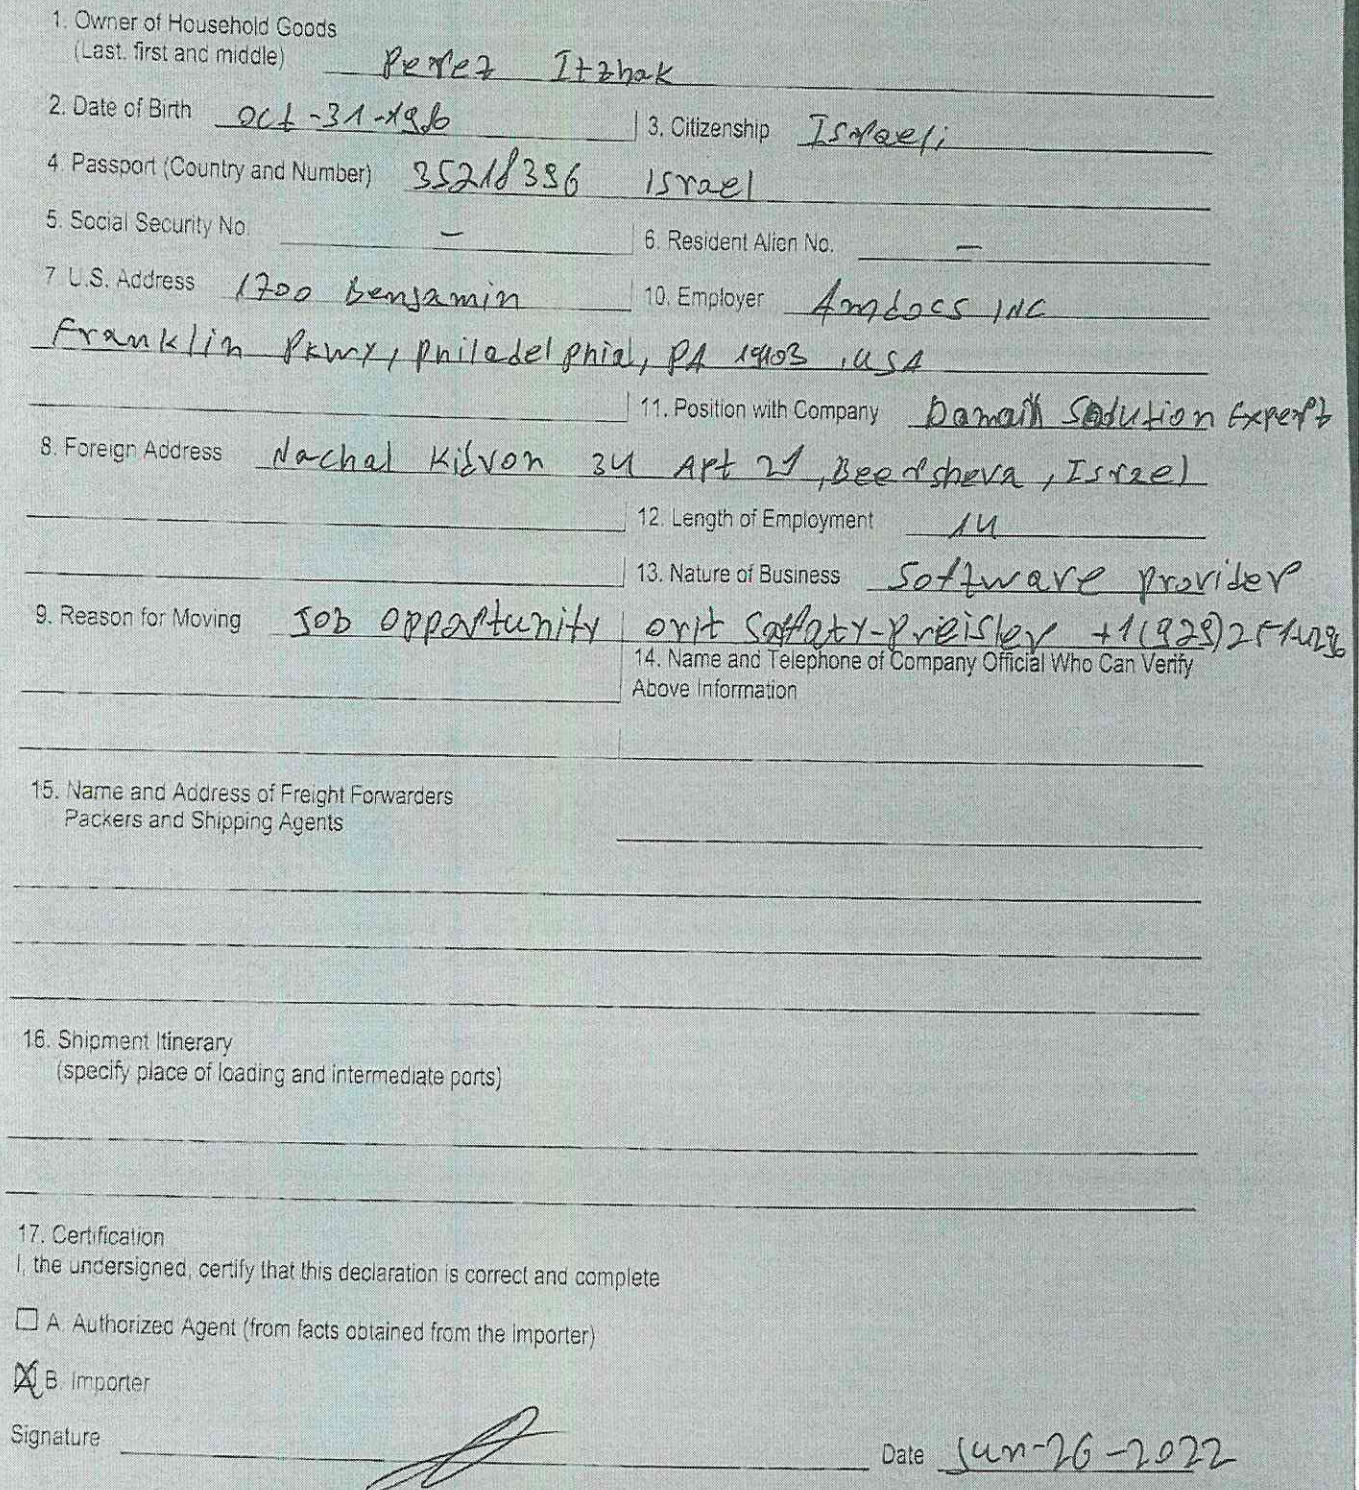 1. Owner of Household Goods
(Last, first and middle) Perez Itzhak
2. Date of Birth Oct-31- 3. Citizenship Israeli
4. Passport (Country and Number) Israel
5. Social Security No. - 6. Resident Alien No. -
7. U.S. Address 1700 Benjamin 10. Employer Amdocs INC
Franklin Pkwy, Philadelphia, PA 19103, USA
11. Position with Company Expert
8. Foreign Address Nachal 34 Apt 21, Beersheva, Israel
12. Length of Employment 14
13. Nature of Business Software provider
9. Reason for Moving Job opportunity orit -Preisler
14. Name and Telephone of Company Official Who Can Verify
Above Information
15. Name and Address of Freight Forwarders
Packers and Shipping Agents
16. Shipment Itinerary
(specify place of loading and intermediate ports)
17. Certification
I, the undersigned, certify that this declaration is correct and complete
A. Authorized Agent (from facts obtained from the importer)
B. Importer
Signature Date Jun-26-2022